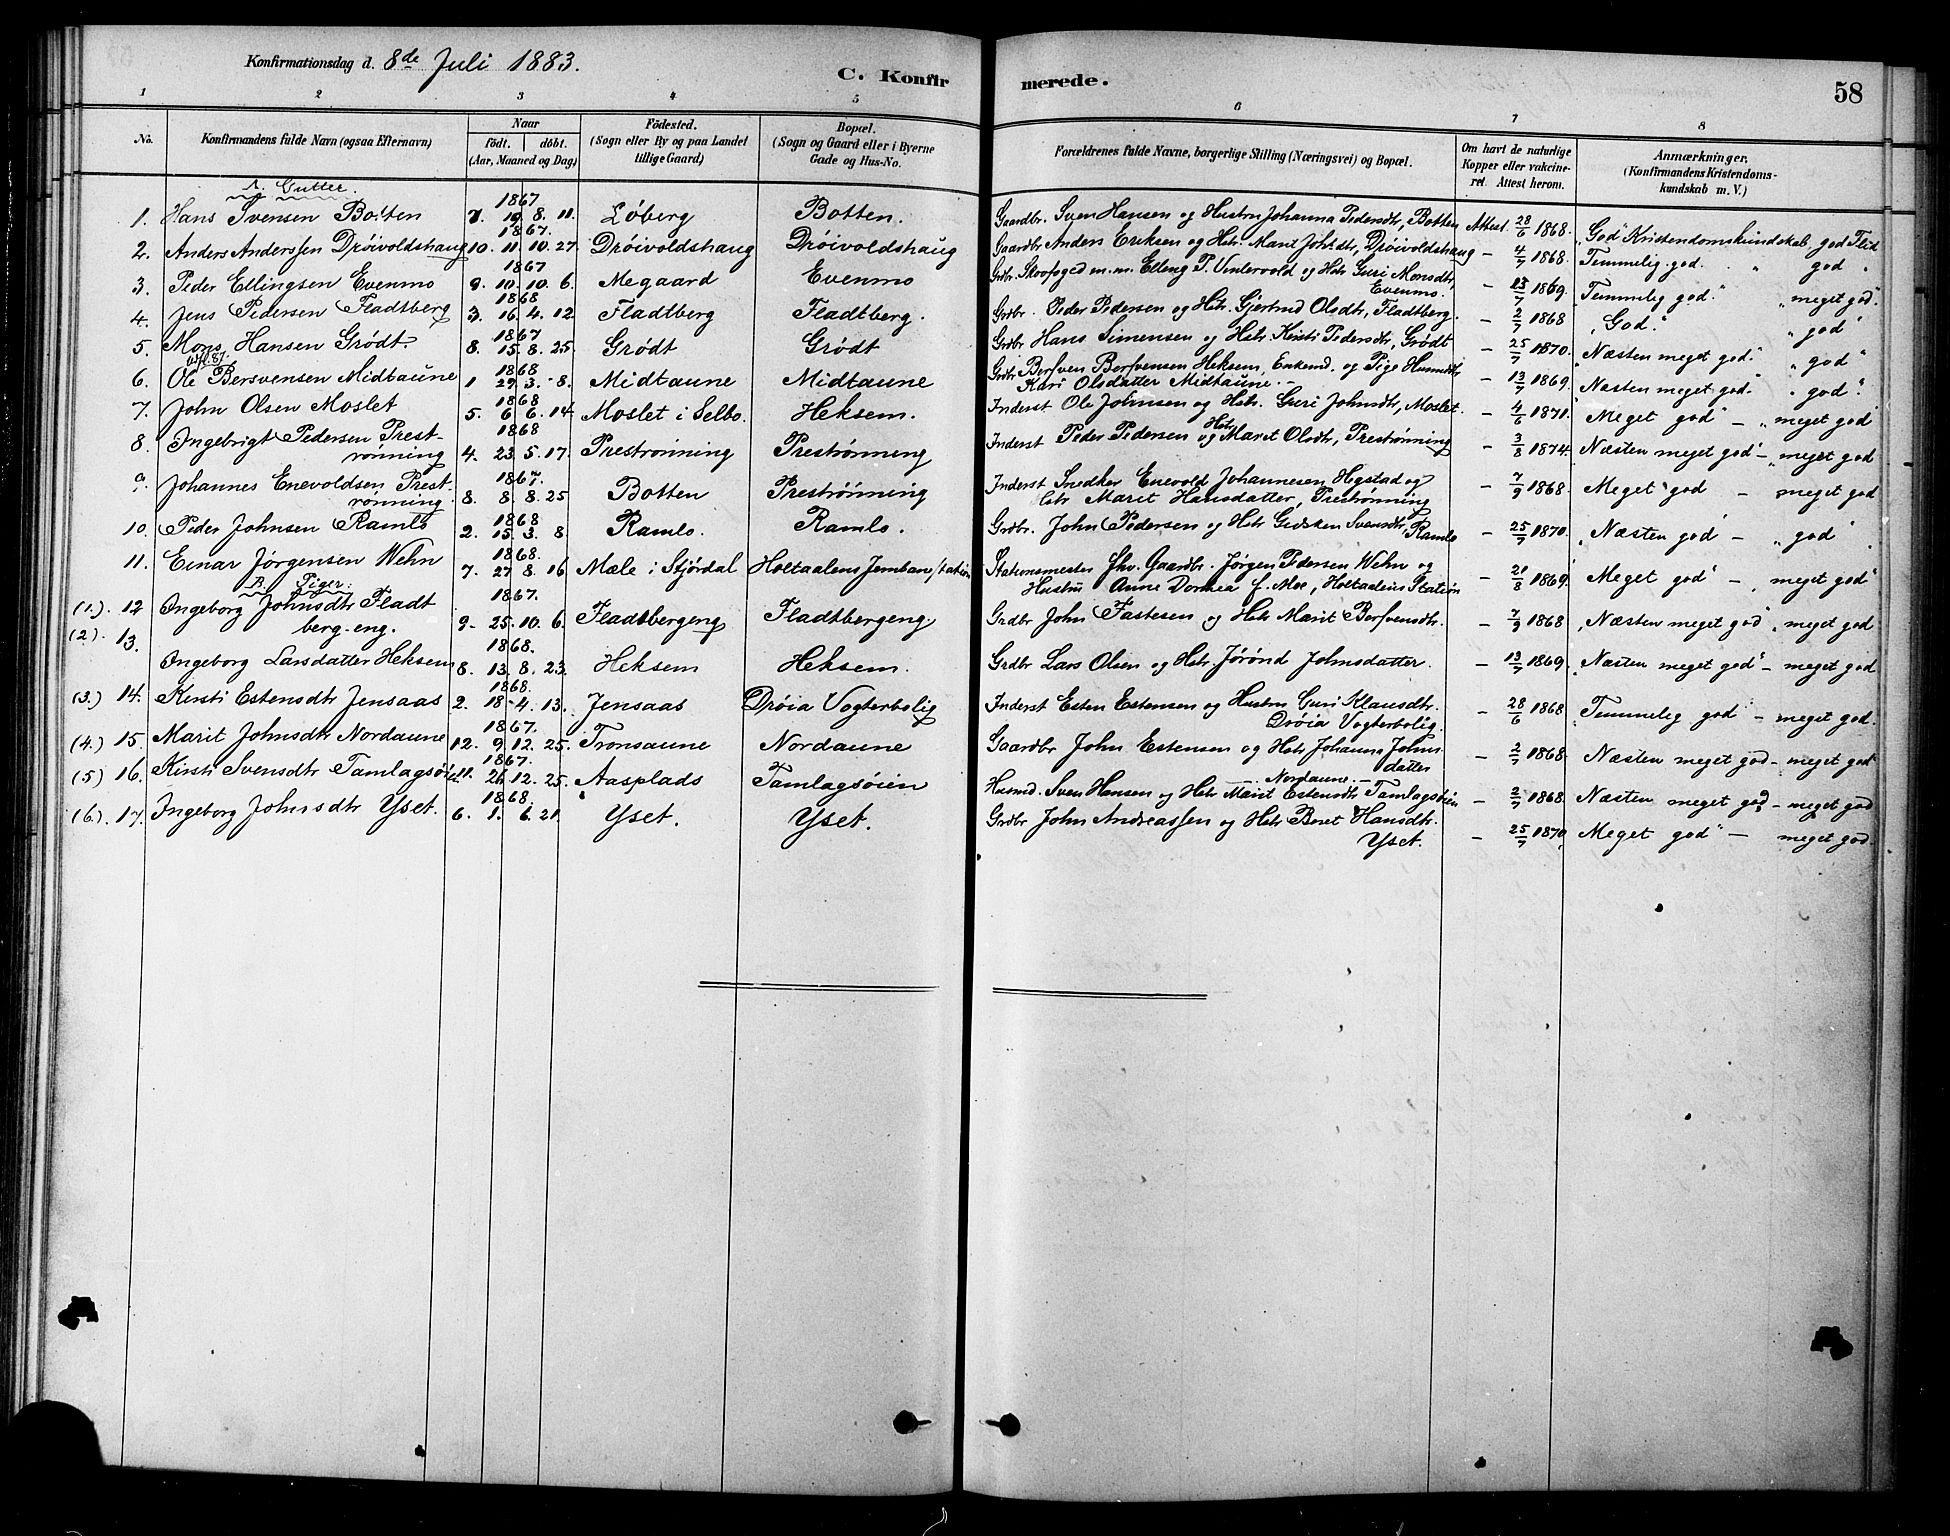 Konfirmationsdag d. 8de Juli 1883.
C. Konfirmerede.
58
1 2 3 4 5 6 7 8
No.
Konfirmandens fulde Navn (ogsaa Efternavn)
Naar
födt. | döbt.
(Aar, Maaned og Dag)
Födested.
(Sogn eller By og paa Landet
tillige Gaard)
Bopæl.
(Sogn og Gaard eller i Byerne
Gade og Hus-No.
Forældrenes fulde Navne, borgerlige Stilling (Næringsvei) og Bopæl.
Om havt de naturlige
Kopper eller vakcine-
ret. Attest herom.
Anmærkninger.
(Konfirmandens Kristendoms-
kundskab m. V.)
A. Gutter.
1867
1. Hans Svensen Botten 7. 19. 8. 11. Löberg Botten. Gaardbr. Sven Hansen og Hustru Johanna Pedersdtr, Botten Attest. 28/6 1868. "God" Kristendomskundskab god Flid
1867.
2. Anders Anderssen Dröivoldshaug 10. 11. 10. 27. Dröivoldshaug Dröivoldshaug Gaardbr Anders Eriksen og Hstr. Marit Johsdtr, Dröivoldshaug – 4/7 1868. Temmelig god. " god "
1867
3. Peder Ellingsen Evenmo 9. 10. 10. 6. Megaard Evenmo Grdbr. Skovfoged m.m. Elling P. Vintervold og Hstr Guri Monsdtr,
Evenmo. – 13/7 1869. Temmelig god." "meget god".
1868
4. Jens Pedersen Fladtberg 3. 16. 4. 12. Fladtberg Fladtberg. Grdbr. Peder Pedersen og Hstr. Gjertrud Olsdtr, Fladtberg. – 2/7 1868 "God." "god"
1867
5. Mons Hansen Grödt. 8. 15. 8. 25. Grödt Grödt Grdbr Hans Simensen og Hstr. Kirsti Pedersdtr, Grödt – 25/7 1870. Næsten meget god." "god"
1868
6. Ole Bersvensen Midtaune 1 29. 3. 8. Midtaune Midtaune Grdbr Bersven Bersvensen Heksem, Enkemd. og Pige Husmdtr
Kari Olsdatter Midtaune. – 13/7 1869. Næsten meget god." "god".
1868
7. John Olsen Moslet 5. 6 6. 14. Moslet i Selbo. Heksem. Inderst Ole Johnsen og Hstr. Guri Johnsdtr, Moslet. – 4/6 1871. Meget god" – "meget god"
1868
8. Ingebrigt Pedersen Prest-
rönning 4. 23. 5. 17. Preströnning Preströnning Inderst Peder Pedersen og Hstr Marit Olsdtr, Preströnning – 3/8 1874. Næsten meget god" – "meget god
1867.
9. Johannes Enevoldsen Prest-
rönning. 8 8. 8. 25 Botten Preströnning Inderst Snedker Enevold Johannesen Hegstad og
Hstr Marit Hansdatter, Preströnning – 7/9 1868. Meget "god – meget god
1868
10. Peder Johnsen Ramlo 2. 15. 3. 8. Ramlo. Ramlo. Grdbr. John Pedersen og Hstr Gidsken Svensdtr, Ramlo – 25/7 1870. "Næsten god" – "god"
1868.
11. Einar Jörgensen Wehn 7. 27 8. 16 Mæle i Stjördal Holtaalens Jernbanestation Stationsmester fhv. Gaardbr. Jörgen Pedersen Wehn og
Hustru Anne Dorthea f. Moe, Holtaalens Station – 21/8 1869. Meget god" – meget god"
B. Piger:
1867.
(1). 12 Ingeborg Johnsdtr Fladt
berg-eng. 9. 25. 10. 6. Fladtbergeng Fladtbergeng Grdbr John Fastesen og Hstr Marit Bersvensdtr. – 7/9 1868 "Næsten meget god" "meget god
1868.
(2). 13. Ingeborg Larsdatter Heksem 8. 13. 8. 23. Heksem Heksem. Grdbr Lars Olsen og Hstr. Jörönd Johnsdatter. – 13/7 1869. "Næsten meget god" – meget god
1868.
(3.) 14. Kirsti Estensdtr Jensaas 2. 18. 4. 13. Jensaas Dröia Vogterbolig Inderst Esten Estensen og Hustru Guri Klausdtr.
Dröia Vogterbolig. – 28/6 1868 "Temmelig god" – meget god.
1867.
(4.) 15. Marit Johnsdtr Nordaune 12. 9 12. 25. Tronsaune Nordaune Gaardbr John Estensen og Hstr Johanna Johns-
datter
– Nordaune. – – 2/7 1868 Næsten meget god – meget god"
1867.
(5) 16. Kirsti Svensdtr Tamlagsöien 11. 26. 12. 25. Aasplads Tamlagsöien Husmd. Sven Hansen og Hstr Marit Estensdtr Tamlagsöien – 2/7 1868. Næsten meget god – meget god
1868.
(6.) 17. Ingeborg Johnsdtr Yset. 6. 1. 6. 21. Yset. Yset. Grdbr John Andreassen og Hstr Beret Hansdtr.
Yset. – 25/7 1870. Meget god" – meget god